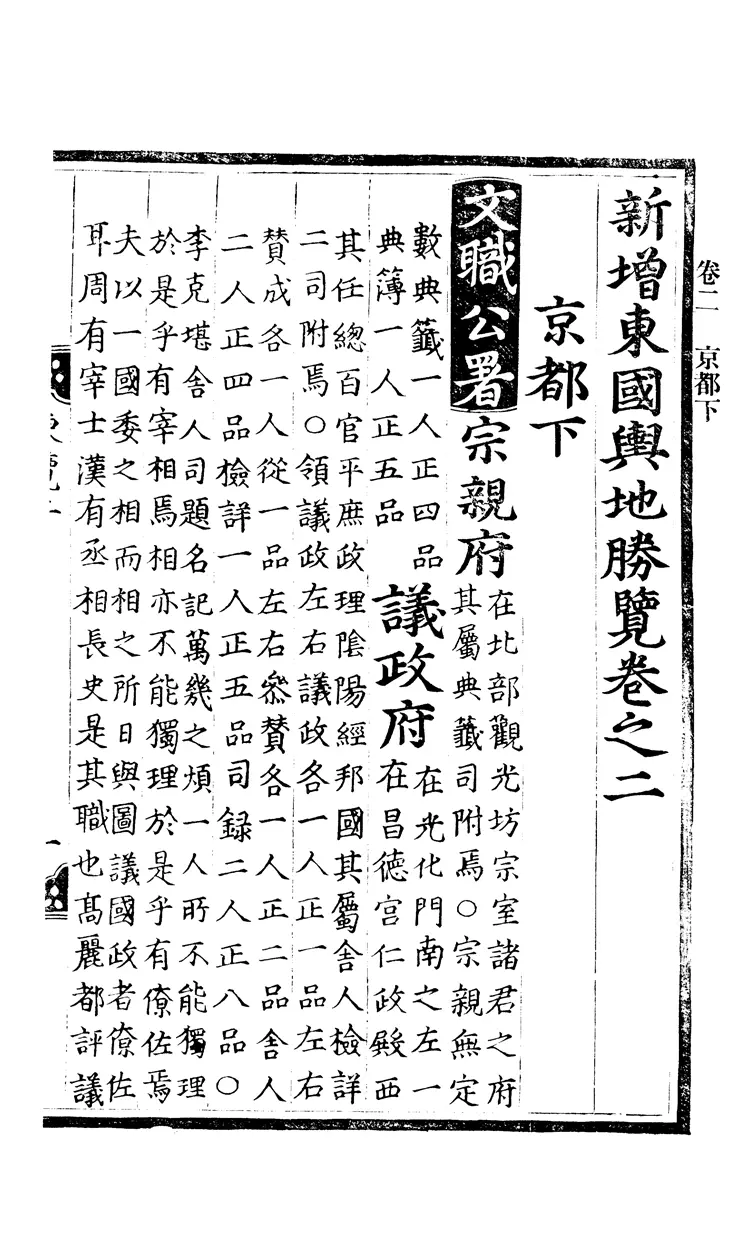 卷二 京都下
新增東國輿地勝覽卷之二
京都下
文職公署宗親府
在北部觀光坊宗室諸君之府
其屬典籤司附焉○宗親無定
數典籤一人正四品
典簿一人正五品
議政府
在光化門南之左一
在昌德宮仁政殿西
其任總百官平庶政理陰陽經邦國其屬舍人檢詳
二司附焉○領議政左右議政各一人正一品左右
賛成各一人從一品左右叅賛各一人正二品舍人
二人正四品檢詳一人正五品司錄二人正八品○
李克堪舍人司題名記萬幾之煩一人所不能獨理
於是乎有宰相焉相亦不能獨理於是乎有僚佐焉
夫以一國委之相而相之所日與圖議國政者僚佐
耳周有宰士漢有丞相長史是其職也髙麗都評議